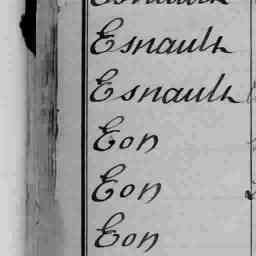 Esnault
Esnault
Esnault
Eon
Eon
Eon